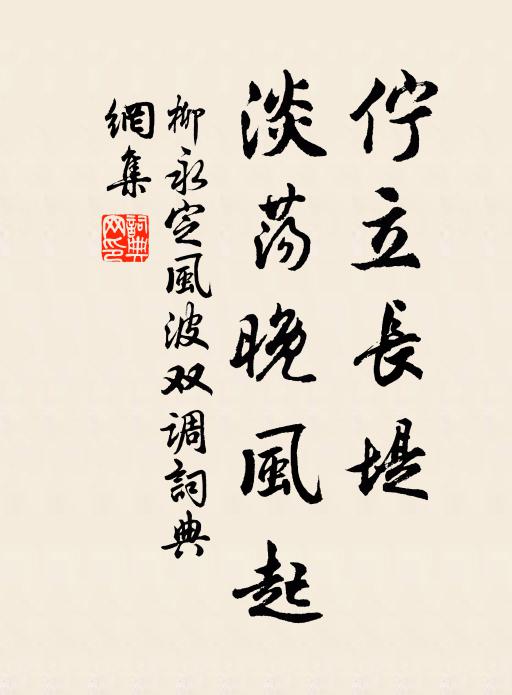 佇立長堤
淡荡晚風起
柳永定風波双调詞典
網集
詞典
网印